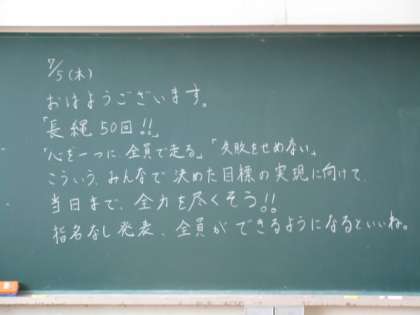 7/5(木)
おはようございます。
「長縄50回!!」
「心を一つに、全員で走る」「失敗をせめない」
こういう、みんなで決めた目標の実現に向けて、
当日まで、全力を尽くそう!!
指名なし発表、全員ができるようになるといいね。